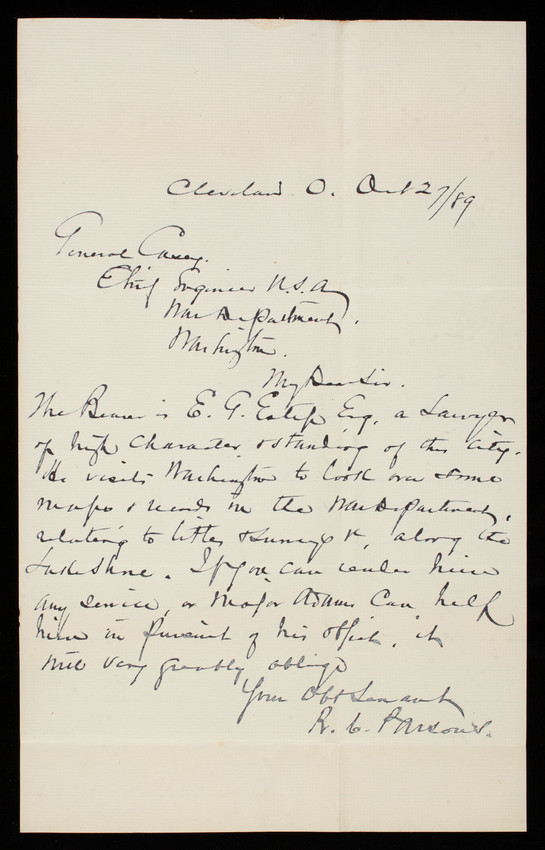 Cleveland O. Oct 27/89
General Casey.
Chief Engineer U.S.A
War Department.
Washington.
My Dear Sir.
The Bearer is E. G. Estep Esq, a Lawyer
of high character & standing of this City.
He visits Washington to look over some
maps & records in the War Department,
relating to titles & surveys &c, along the
Lake Shore. If you can render him
any service, or Major Adams can help
him in pursuit of his object, it
will very greatly oblige
Your Obt Servant
R. C. Parsons.